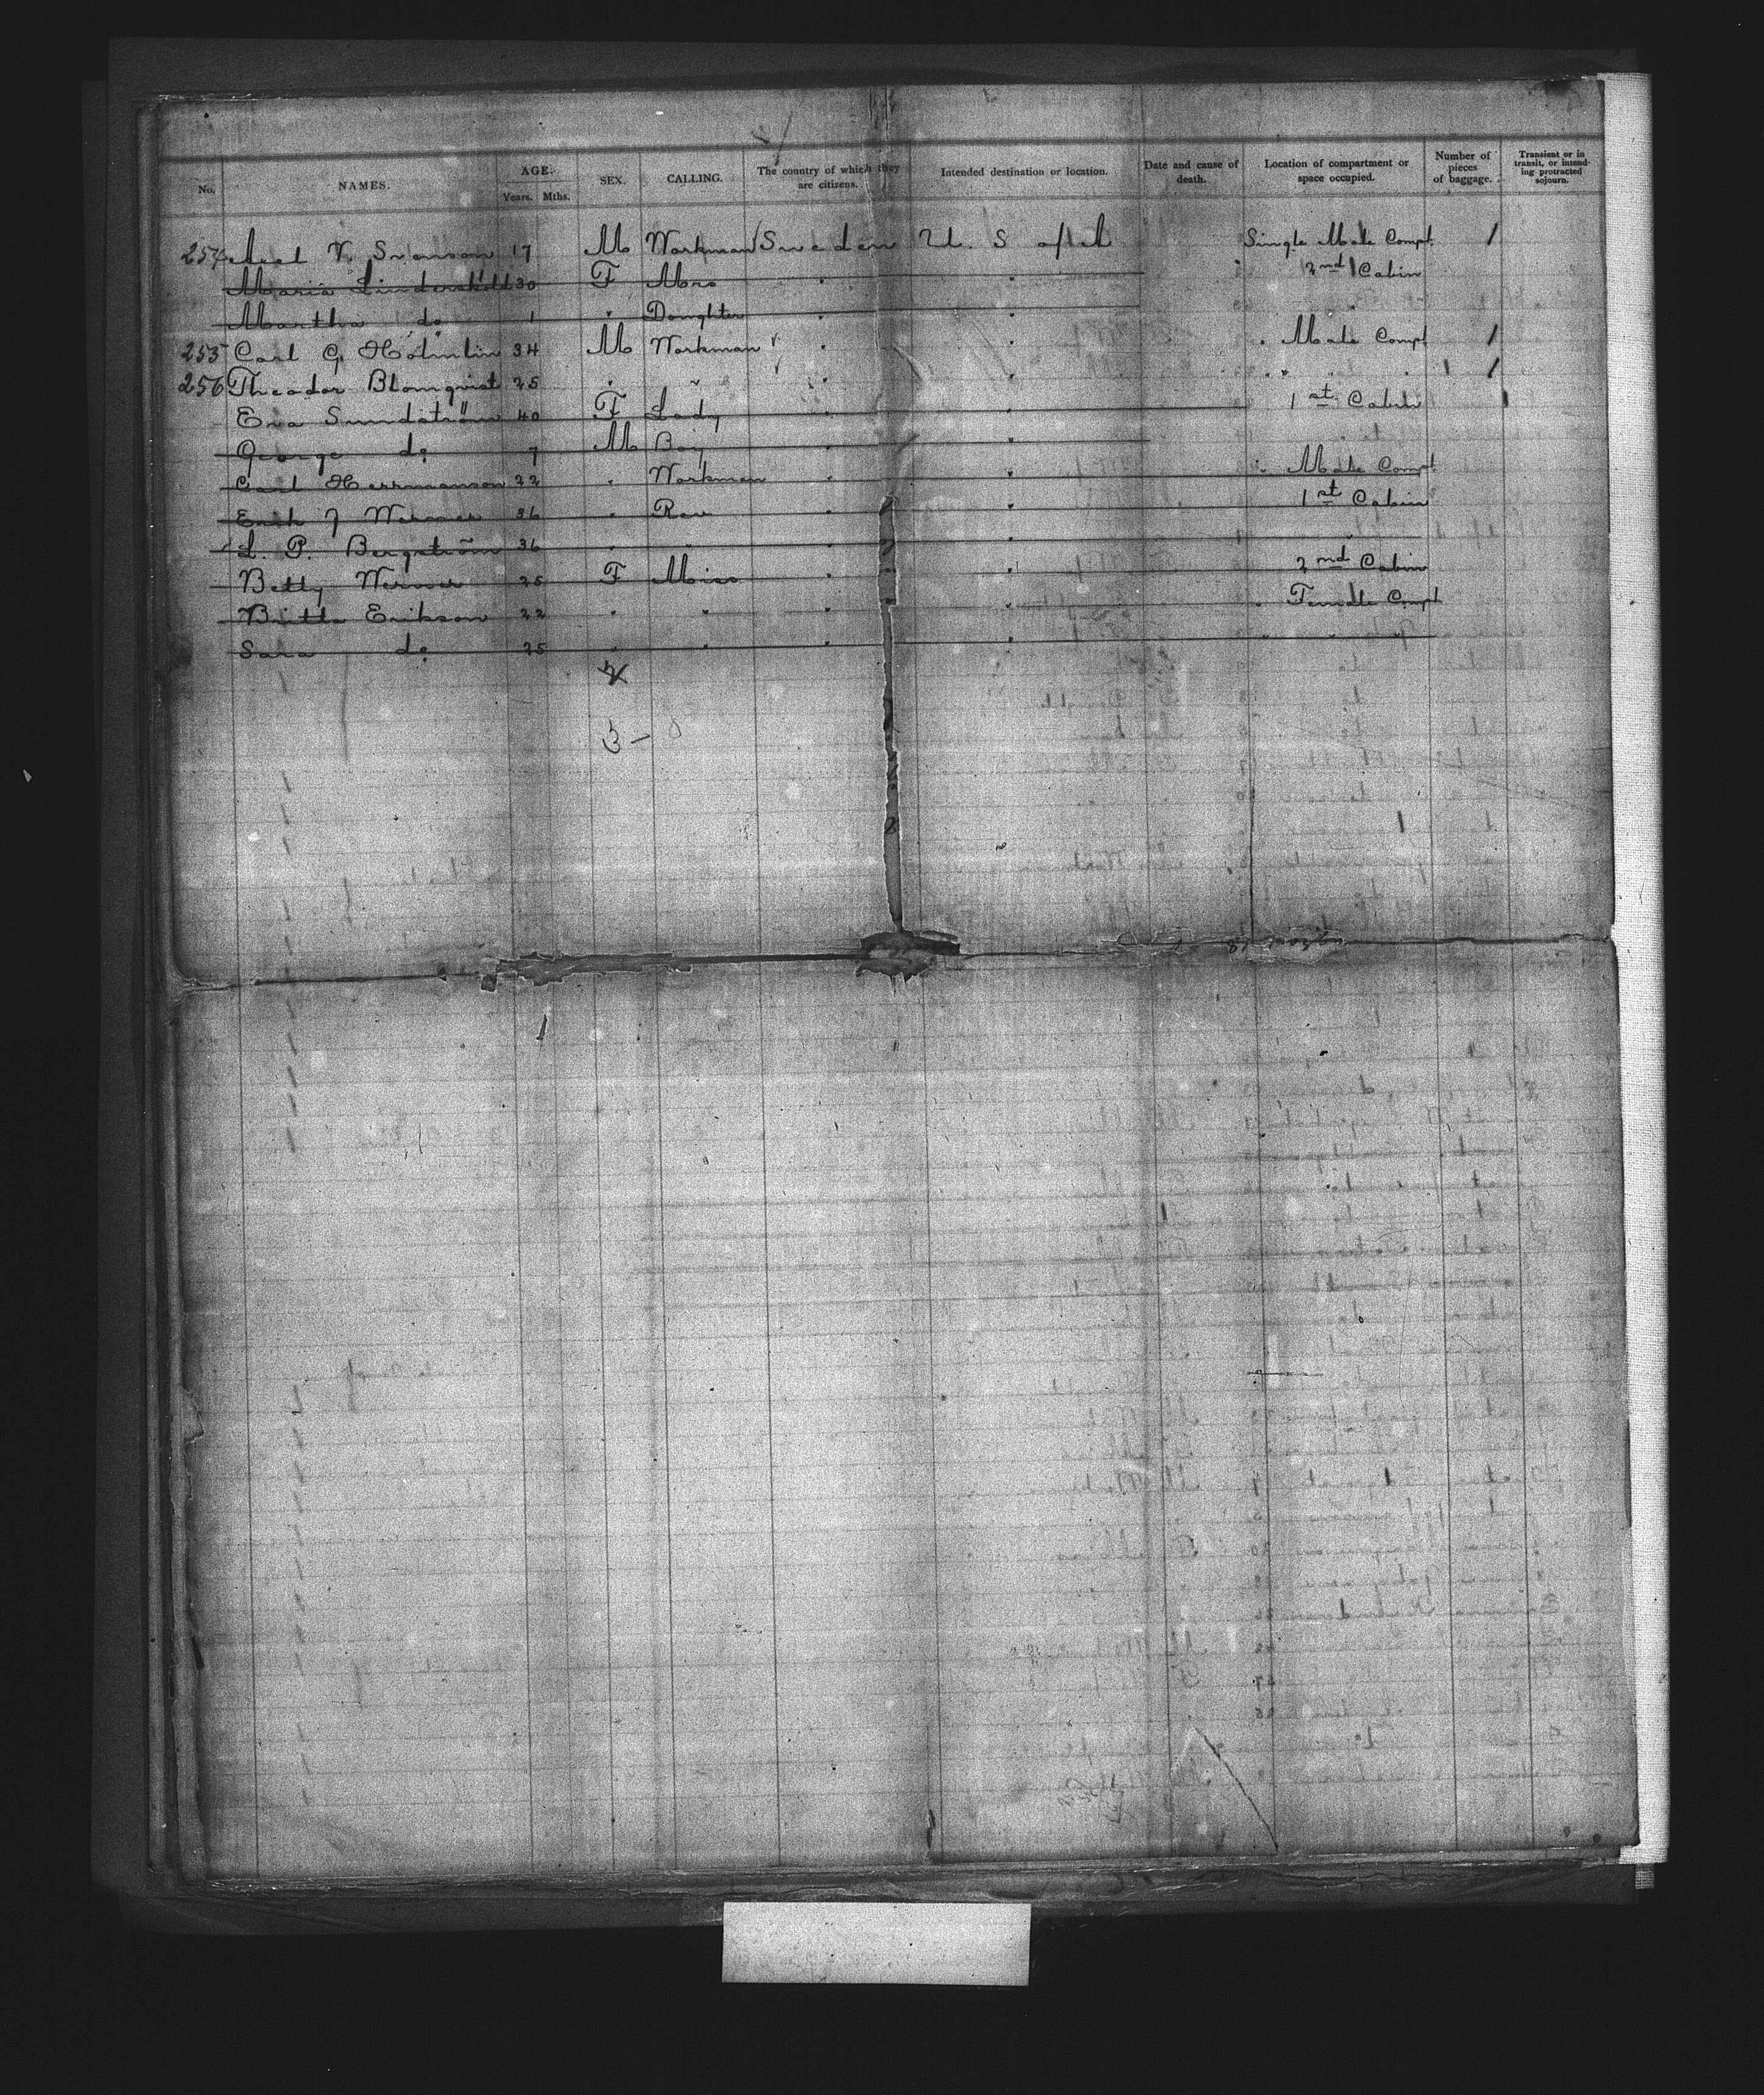 No. NAMES. AGE. Years. Mths. SEX. CALLING. The country of which they are citizens. Intended destination or location. Date and cause of death. Location of compartment or space occupied. Number of pieces of baggage. Transient or in transit, or intending protracted sojourn.
254 Axel V. Svanson 17 M Workman Sweden U. S of A Single Male Compt. 1
Maria Linderskold 30 F Mrs " " 2nd Cabin
Martha do 1 " Daughter " " "
255 Carl G. Holmlin 34 M Workman " " " Male Compt 1
256 Theodor Blomqvist 25 " " " " " " " 1
Eva Sundström 40 F Lady " " 1st Cabin
George do 7 M Boy " " "
Carl Herrmanson 22 " Workman " " " Male Compt
Erik J Werner 36 " Rev " " 1st Cabin
L. P. Bergström 36 " " " " "
Betty Werner 25 F Miss " " 2nd Cabin
Britta Erikson 22 " " " " " Female Compt
Sara do 25 " " " " " " "
3 -